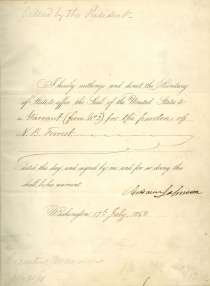 Ordered by the President
I hereby authorize and direct the Secretary
of State to affix the Seal of the United States to
a Warrant (form No 3) for the pardon of
N. B. Forrest
dated this day, and signed by me and for so doing this
shall be his warrant.
Andrew Johnson
Washington 17th July, 1868.
Executive Mansion